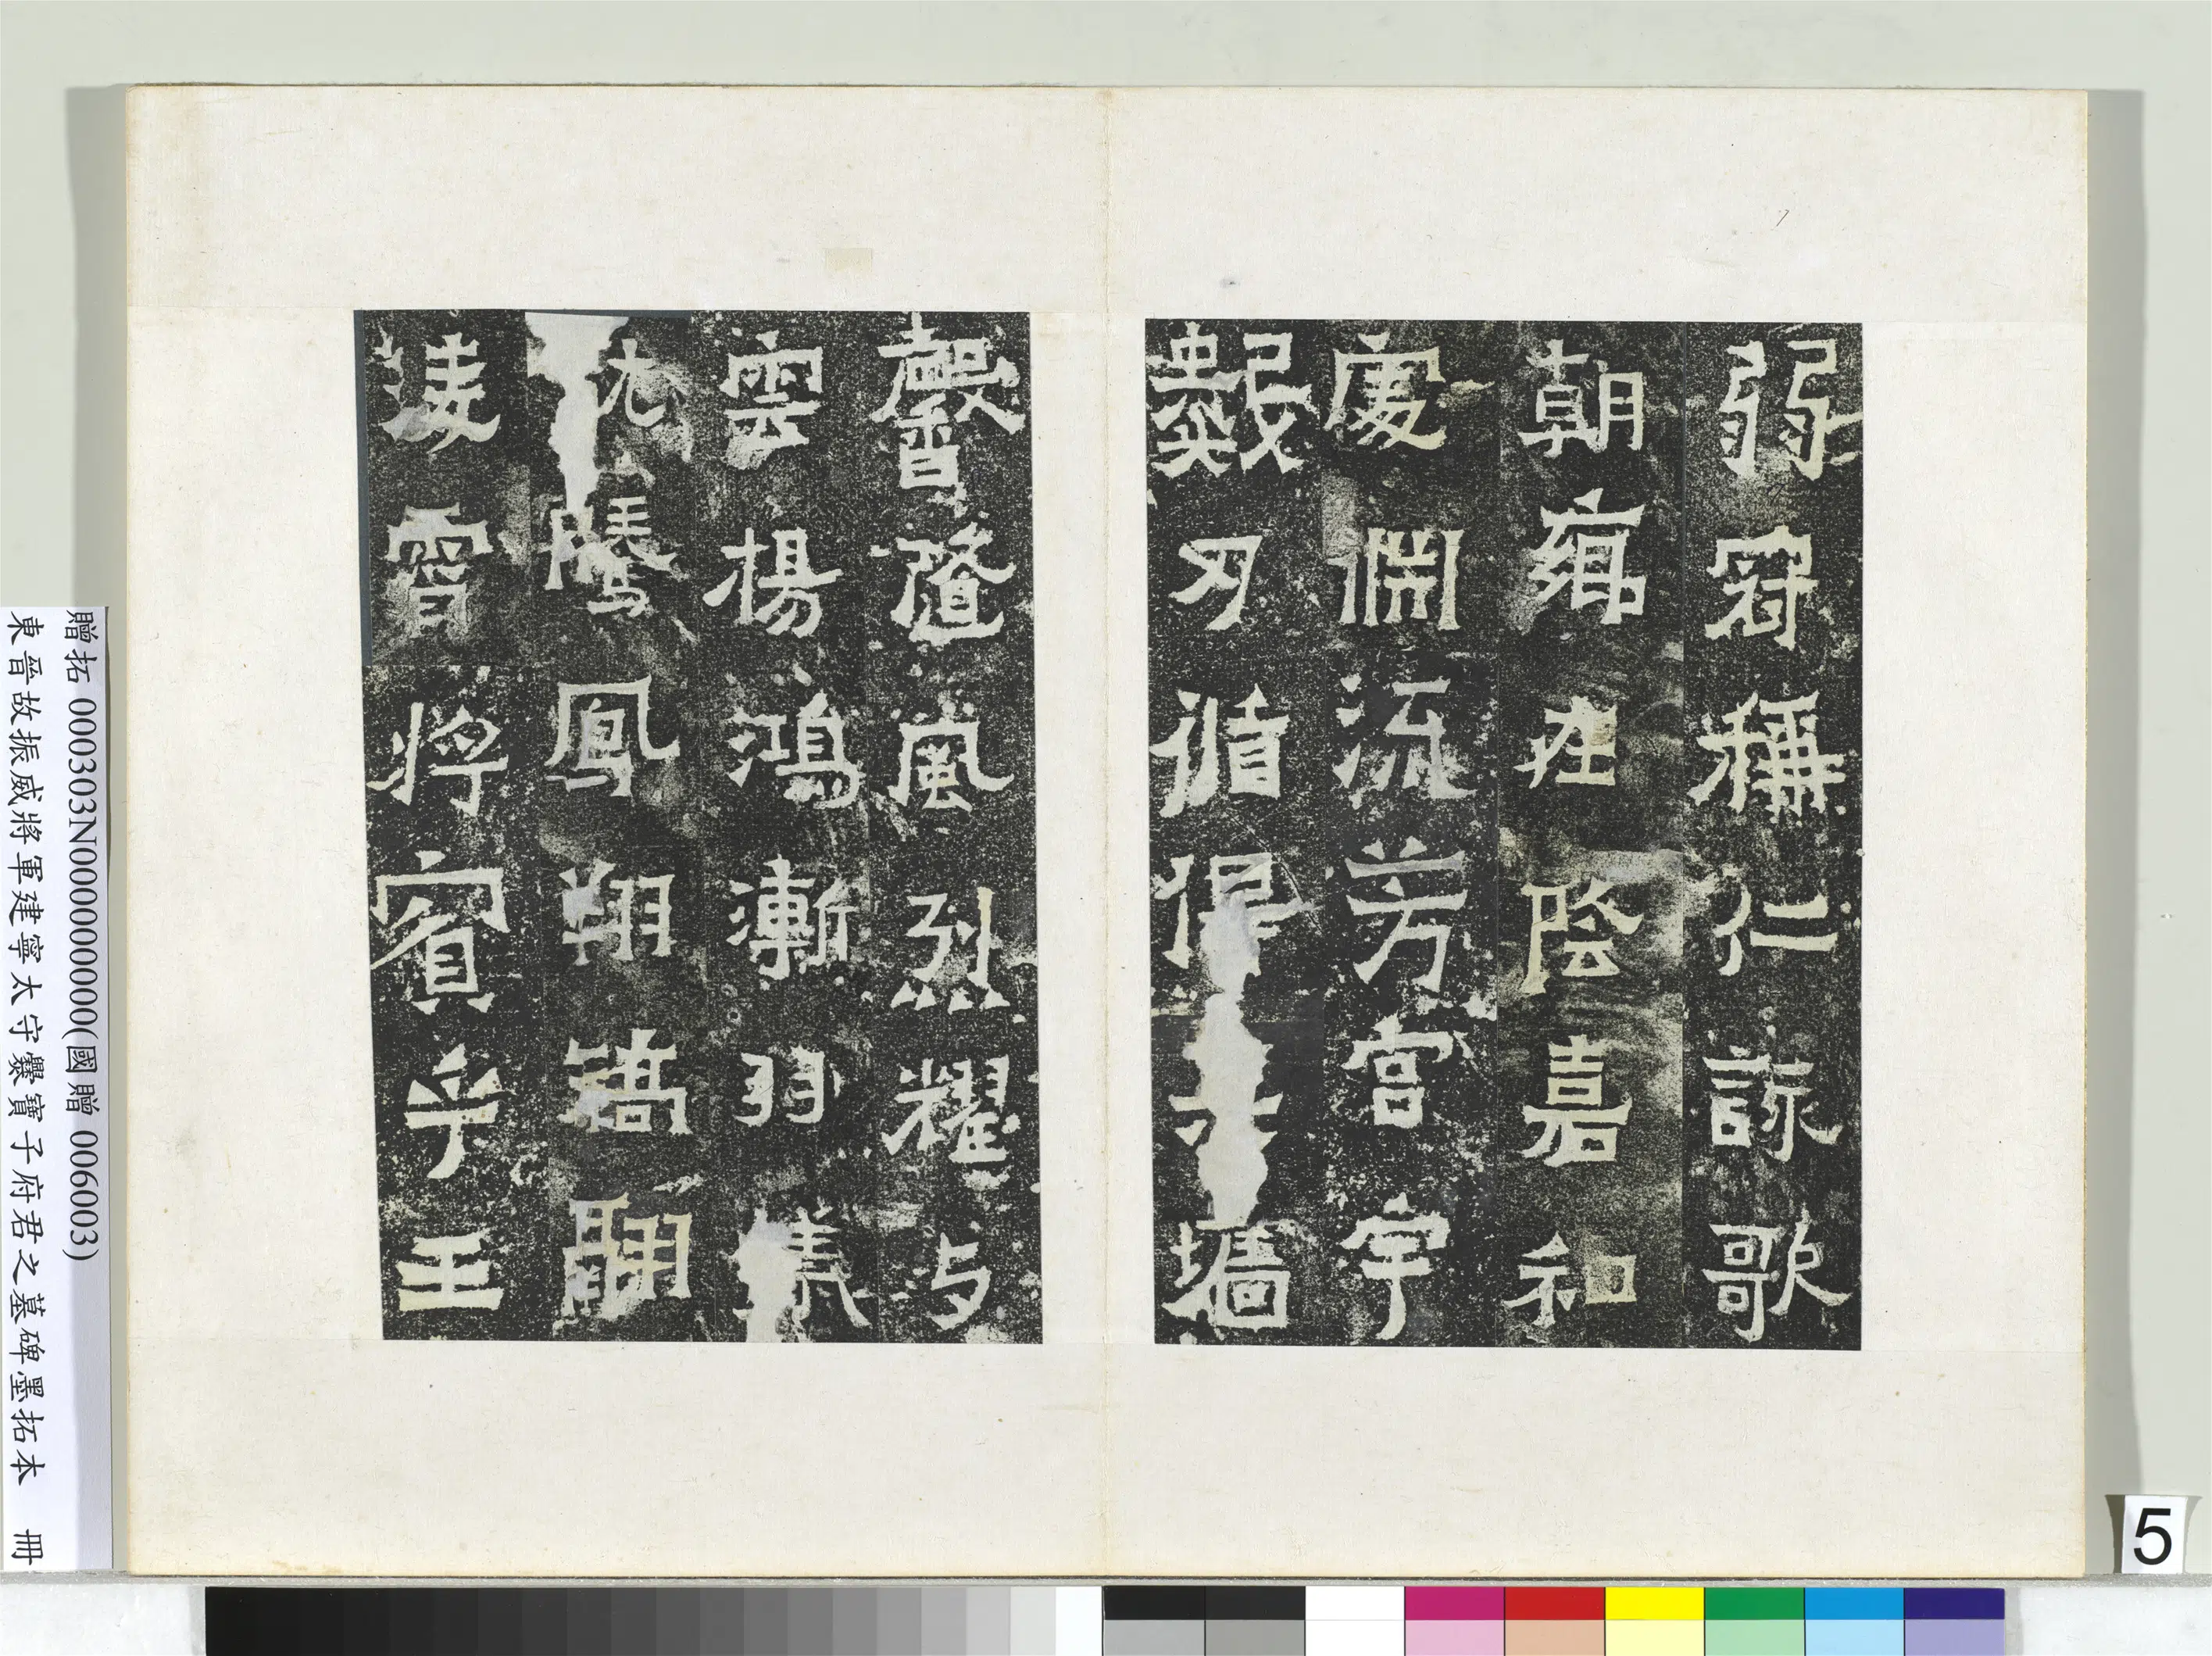 弱冠稱仁詠歌
朝鄉在陰嘉和
處淵流芳宮宇
數刃循得墻
馨隨風烈耀与
雲楊鴻漸羽儀
騰鳳翔矯翮
凌霄將賓乎王
贈拓 000303N000000000(國贈 006003)
東晉故振威將軍建寧太守爨寶子府君之墓碑墨拓本 冊
5